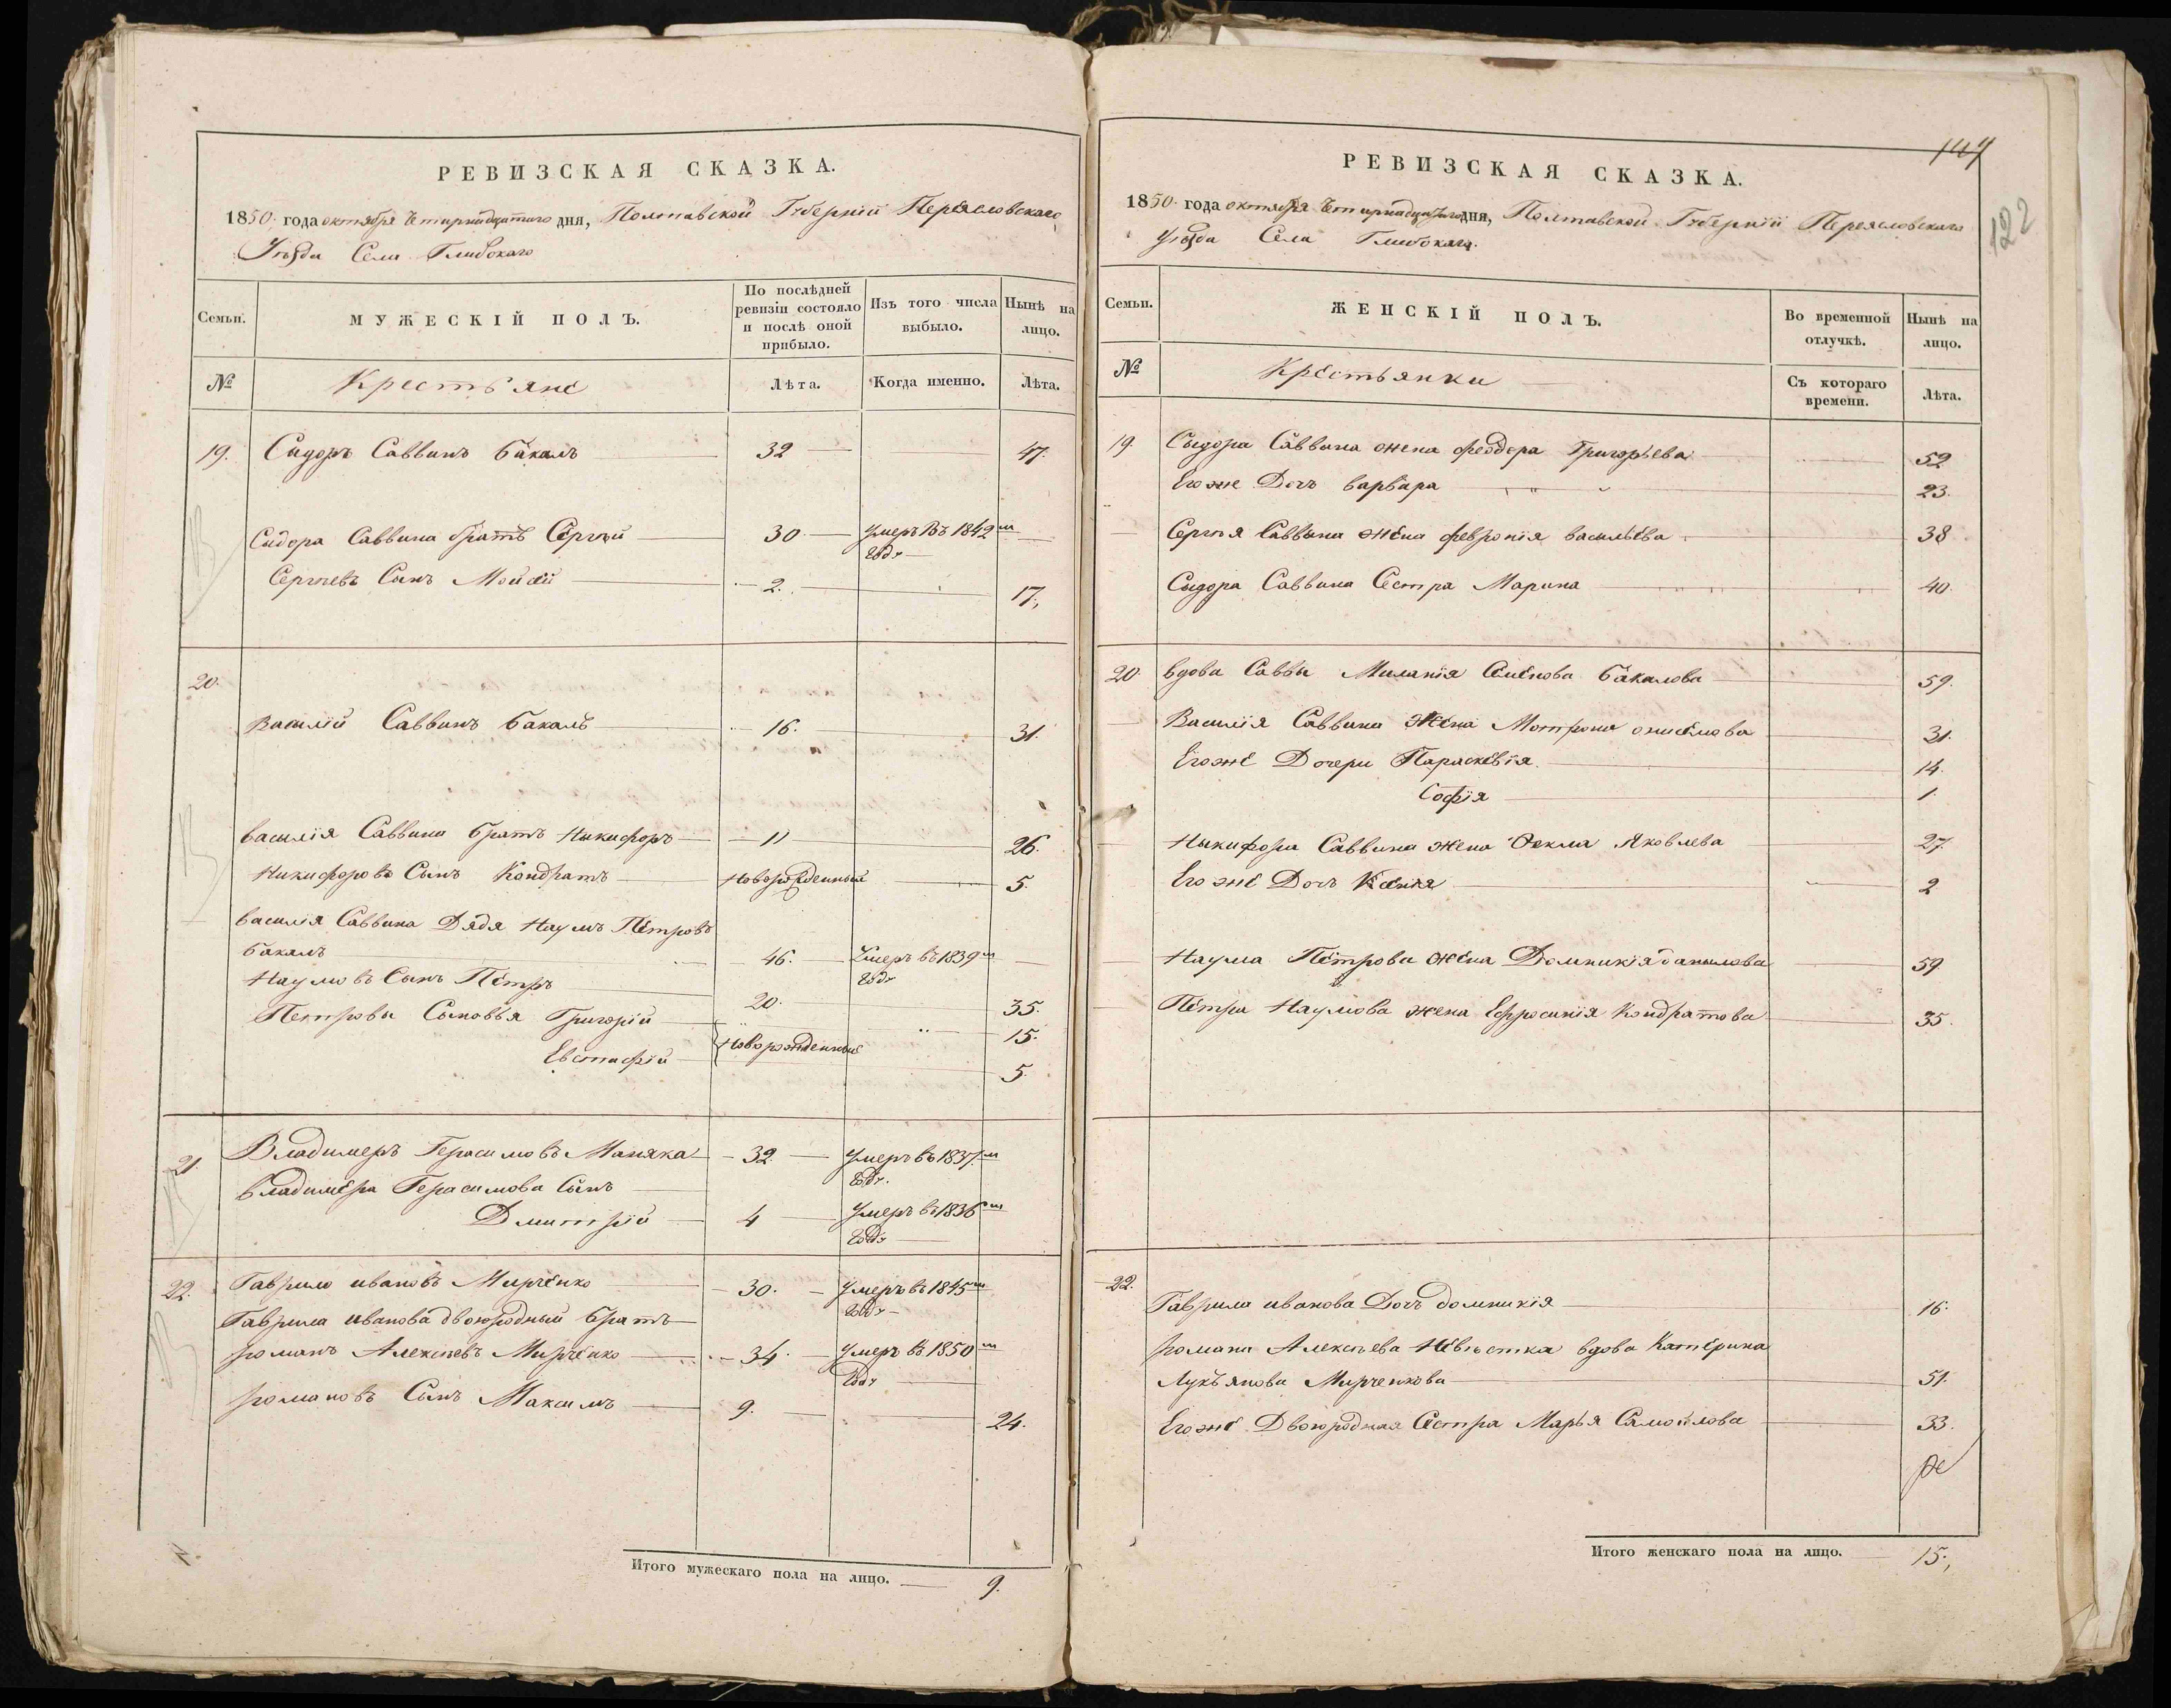 РЕВИЗСКАЯ СКАЗКА.
1850. года октября Етыринадцатаго дня, Полтавской Губерніи Переясловскаго
Уѣзда Села Глибокаго
Семьи. МУЖЕСКІЙ ПОЛЪ. По послѣдней ревизіи состояло и послѣ оной прибыло. Изъ того числа выбыло. Нынѣ на лицо.
№ Крестьяне Лѣта. Когда именно. Лѣта.
19. Сидоръ Саввинъ Бакалъ 32 47.
Сидора Саввина братъ Сергѣй 30. умеръ въ 1842м
году
Сергѣевъ Сынъ Мойсей 2. 17.
20.
Василій Саввинъ Бакалъ 16. 31.
Василія Саввина братъ Никифоръ 11 26.
Никифоровъ Сынъ Кондратъ Новорожденный 5.
Василія Саввина Дядя Наумъ Петровъ
Бакалъ 46. Умеръ въ 1839м
году
Наумовъ Сынъ Петръ 20. 35.
Петровы Сыновья Григорій 15.
Новорожденные
Евстафій 5.
21. Владимеръ Герасимовъ Маняка 32. умеръ въ 1837м
году.
Владимера Герасимова Сынъ
Дмитрій 4 умеръ въ 1836м
году
22. Гаврило Ивановъ Мирченко 30. умеръ въ 1845м
году
Гаврила Иванова двоюродный братъ
Романъ Алексѣевъ Мирченко 34. умеръ въ 1850м
году
Романовъ Сынъ Максимъ 9. 24.
Итого мужескаго пола на лицо. 9.
122
РЕВИЗСКАЯ СКАЗКА.
1850. года октября Етыринадцатаго дня, Полтавской Губерніи Переясловскаго
Уѣзда Села Глибокаго.
Семьи. ЖЕНСКІЙ ПОЛЪ. Во временной отлучкѣ. Нынѣ на лицо.
№ Крестьянки Съ котораго времени. Лѣта.
19. Сыдора Саввина жена Феодора Григорьева 52
Егоже Дочь Варвара 23.
Сергѣя Саввина жена Февронія Васильева 38
Сыдора Саввина Сестра Марина 40.
20. вдова Саввы Миланія Семенова Бакалова 59.
Василія Саввина Жена Мотрона Онисимова 31.
Егоже Дочери Параскевія 14.
Софія 1.
Никифора Саввина жена Ѳекла Яковлева 27.
Егоже Дочь Ксенія 2
Наума Петрова жена Домникія Данилова 59
Петра Наумова жена Ефросинія Кондратова 35.
22.
Гаврила Иванова Дочь Домникія 16.
Романа Алексѣева Невѣстка вдова Катерина
Лукъянова Мирченкова 51.
Егоже Двоюродная Сестра Марья Самойлова 33.
Итого женскаго пола на лицо. 15.